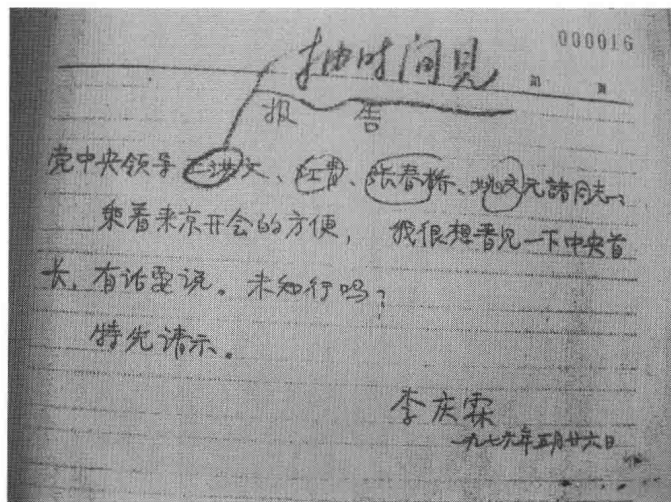 000016
抽时间见
报告
党中央领导王洪文、江青、张春桥、姚文元諸同志:
乘着来京开会的方便, 我很想晋见一下中央首
长, 有话要说。未知行吗?
特先请示。
李庆霖
一九七六年五月廿六日